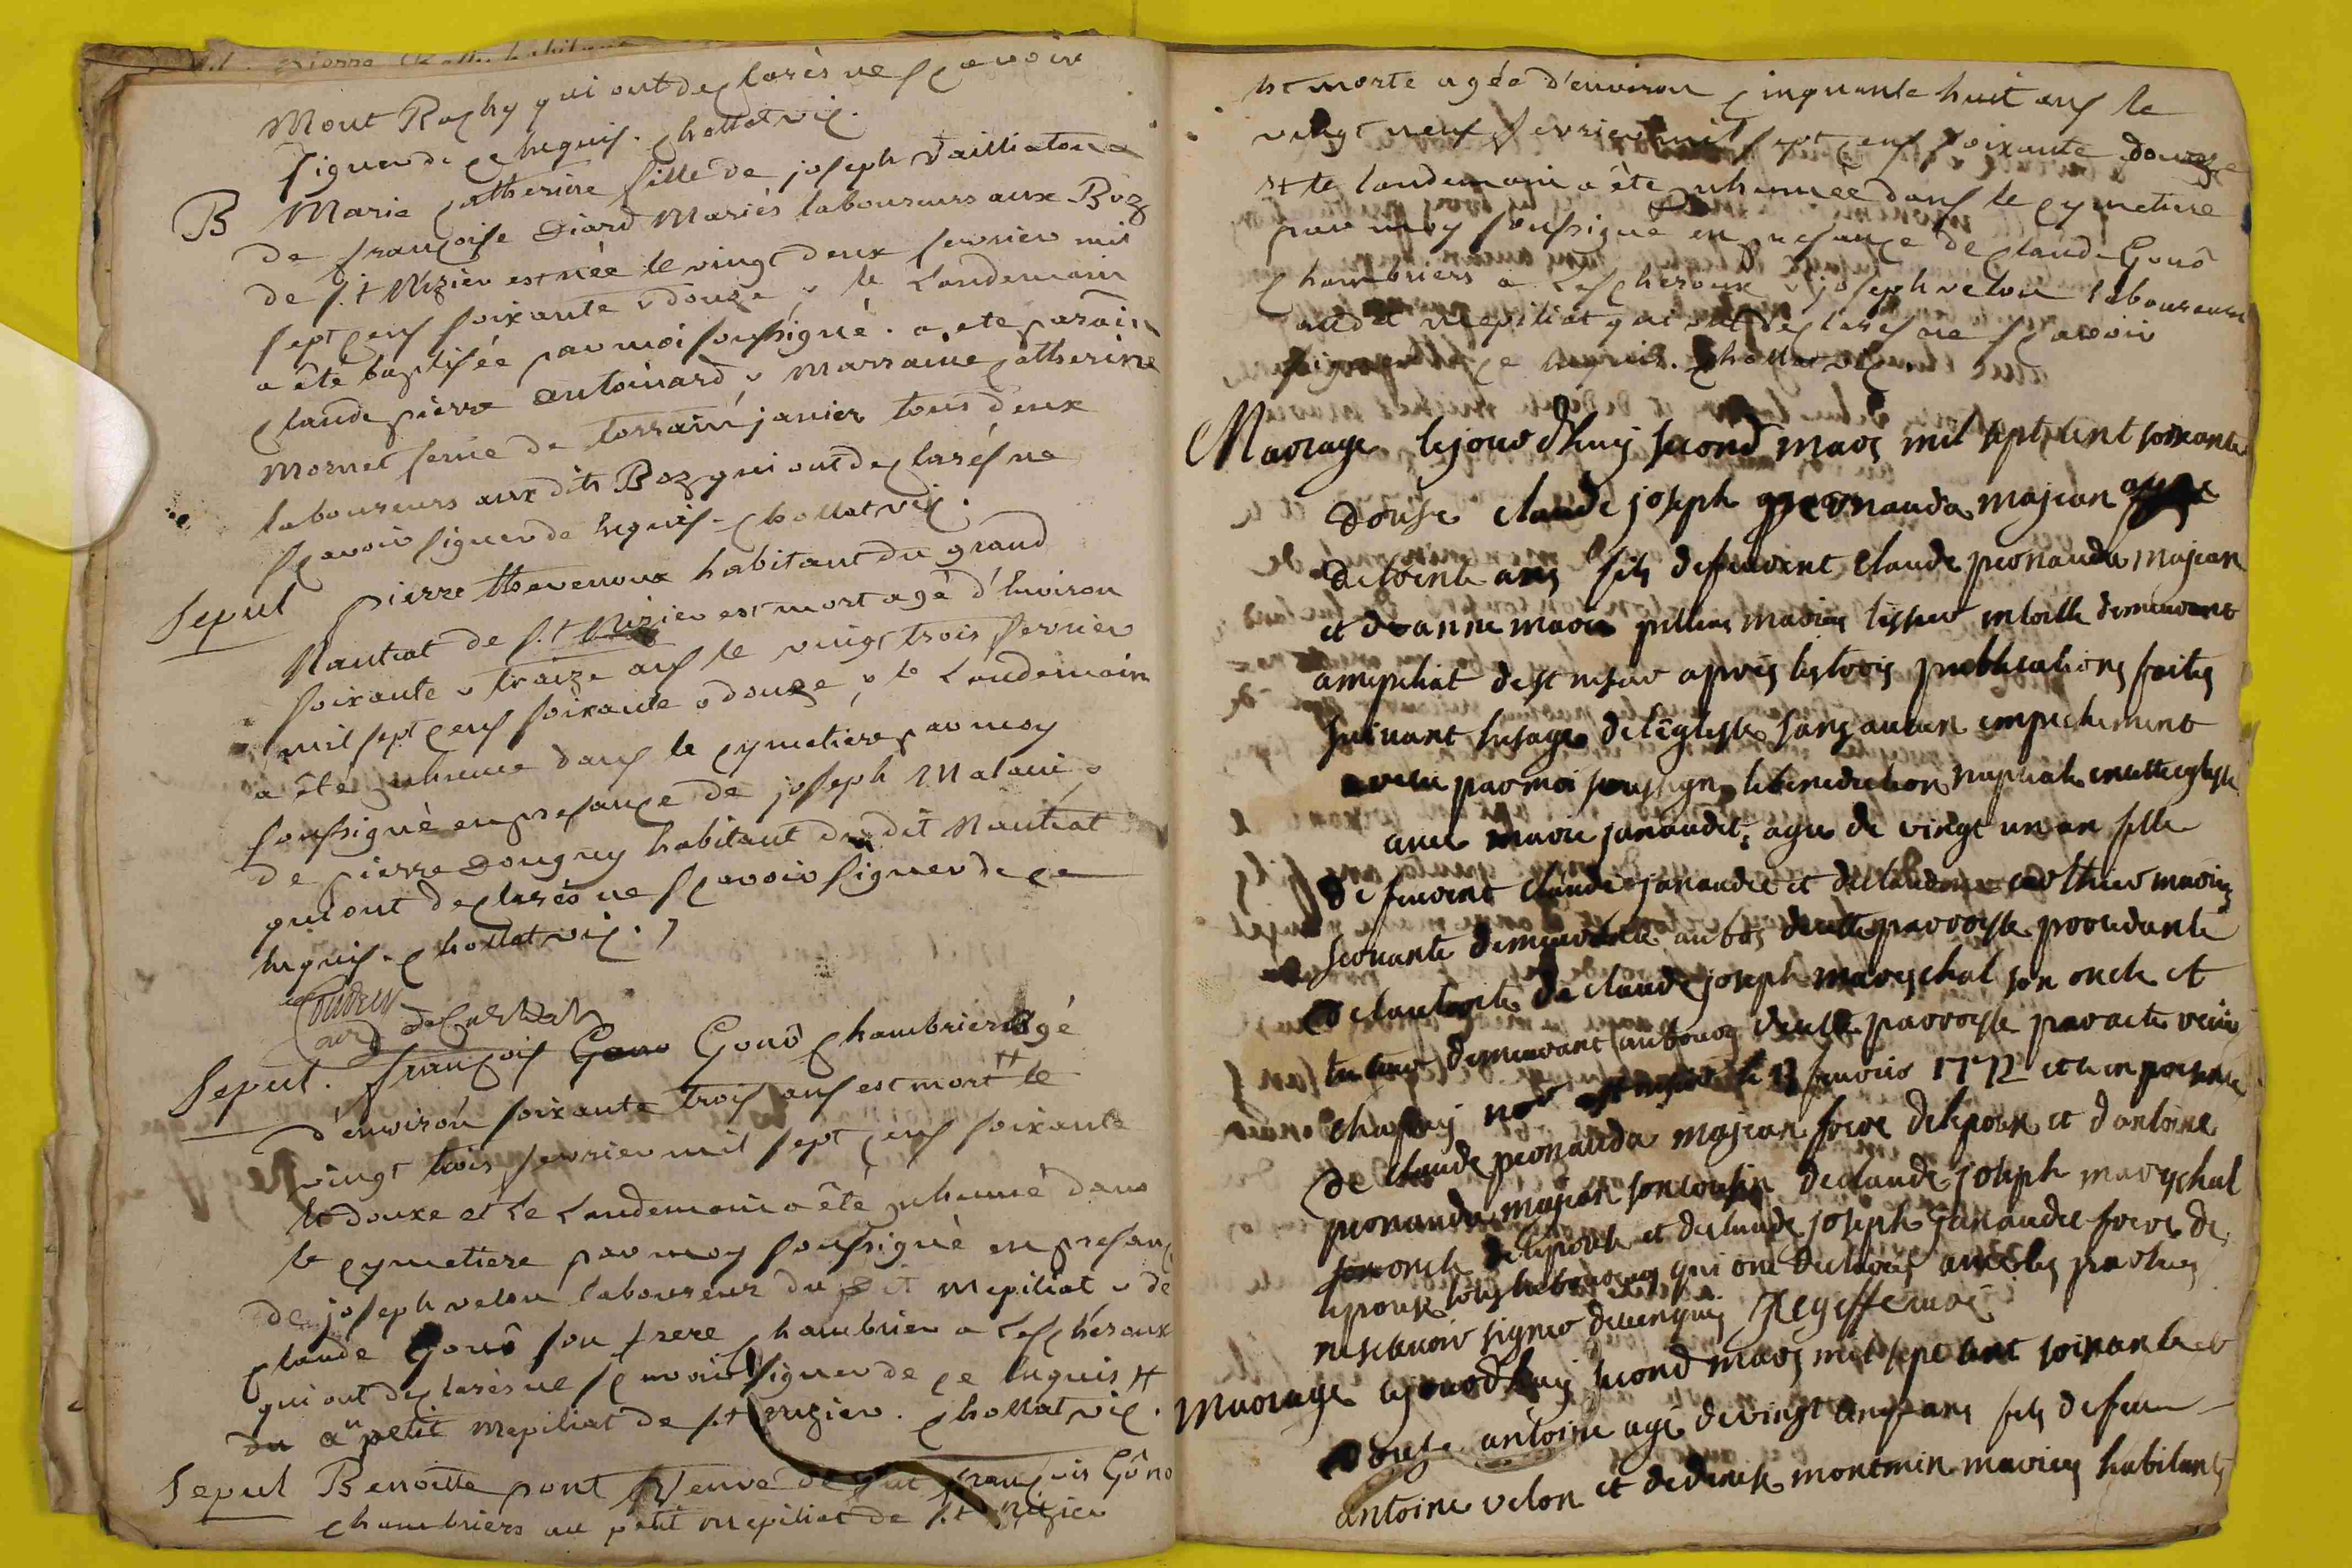 Mont Rachy qui ont declarés ne scavoir
signer de ce enquis. chollat vic.
B Marie catherine fille de joseph vailliaton
de françoise Diard Mariés laboureurs aux Boz
de s.t Nizier est née le vingt deux fevrier mil
sept cens soixante & douze, & le Landemain
a été baptisée par moi soussigné. a ete parain
claude pierre antoinard & Marraine catherine
Mornet femme de Lorrain janier tous deux
laboureurs aux dits Boz qui ont declarés ne
scavoir signer de enquis. chollat vic.
Sepul pierre thevenoux habitant du grand
Nautiat de s.t Nizier est mort agé d'environ
soixante & traize ans le vingt trois fevrier
mil sept cens soixante & douze, & le Landemain
a été inhumé dans le cymetiere par moy
soussigné en presance de joseph Matani &
de pierre Dougney habitant du dit Nautiat
qui ont declarés ne scavoir signer de ce
enquis. chollat vic.
Sepul. françois Gono Chambrier agé
d'environ soixante trois ans est mort # le
vingt trois fevrier mil sept cens soixante
et douze et Le Landemain a été inhumé dans
le cymetiere par moy soussigné en presance
de joseph velon laboureur du dit Mepiliat & de
claude Gonô son frere chambrier a Lescheroux
qui ont declarés ne scavoir signer de ce enquis #
au petit Mepiliat de s.t nizier. chollat vic.
Sepul Benoitte pont veuve de françois Gôno
chambriers au petit Mepiliat de s.t nizier
est morte agée d'environ cinquante huit ans le
vingt neuf fevrier mil sept cens soixante douze
et le landemain a été inhumée dans le cymetiere
par moy soussigné en presance de claude Gonô
chambriers a Lescheroux & joseph velon laboureurs
au dit Mepiliat qui ont declarés ne scavoir
signer de ce enquis. chollat vic.
Mariage cejourdhuy second mars mil sept cent soixante
douse claude joseph peonauda majean agé
de trente ans fils defeuvent claude peonauda majean
et de anne marie pillion mariés tissier en toille demeurant
a mepiliat de st nisier après les trois publications faites
suivant lusage de lêglise sans aucun empechement
a reçu par moi soussigné la benediction nuptiale en cette eglise
avec marie janaudet, agée de vingt un an fille
defeuvent claude janaudet et de claudine carthier mariés
servante demeurante au bos de cette parroisse procedante
de lautorité de claude joseph mareschal son oncle et
tuteur demeurant au bourg de cette parroisse par acte reçu
chapuy nore st nisier le 13 fevrier 1772 et en presence
de claude peonauda majean frere de lepoux et dantoine
peonauda majean son cousin de claude joseph mareschal
son oncle de lepouse et de claude joseph janaudet frere de
lepouse tous laboureurs qui ont declarés avec les parties
ne scavoir signer de ce enquis
Mariage cejourdhuy second mars mil sept cent soixante et
douse antoine agé de vingt cinq ans fils de feu
antoine velon et de denise montmin mariés habitants